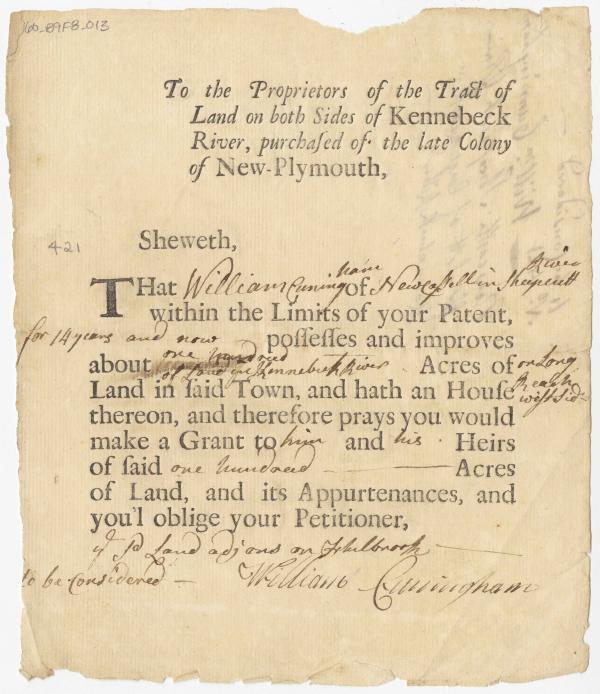 160-89F8-013
To the Proprietors of the Tract of
Land on both Sides of Kennebeck
River, purchaſed of the late Colony
of New-Plymouth,
421
Sheweth,
THat William Cuningham of Newcaſtell in Sheepscutt River
within the Limits of your Patent,
for 14 years and now poſſeſſes and improves
about one hundred Acres of on Long
of Land in Kennebeck River Reach
Land in ſaid Town, and hath an Houſe west Side
thereon, and therefore prays you would
make a Grant to him and his Heirs
of ſaid one hundred Acres
of Land, and its Appurtenances, and
you'l oblige your Petitioner,
yͤ sd Land adjons on
to be Considered — William Cuningham